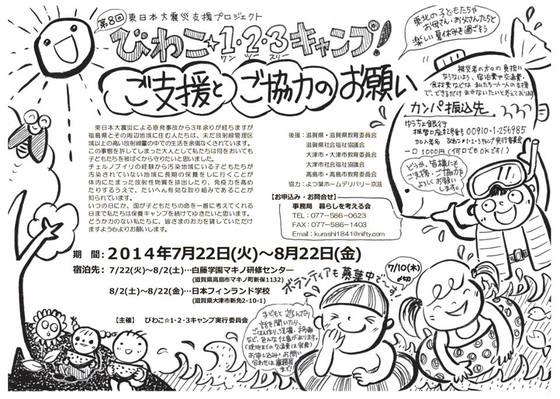 第8回 東日本大震災支援プロジェクト
びわこ☆1・2・3キャンプ!
ワン ツー スリー
ご支援とご協力のお願い
東北の子どもたちが
お母さん・お父さんたちと
楽しい夏休みを過ごそう
カンパ振込先
ゆうちょ銀行
振替口座番号 00910-1-256985
加入者名 びわこ☆1・2・3キャンプ実行委員会
一口 1000円(何口でもOKです!)
どうか、皆様の
ご支援・ご協力を
よろしく
お願いします。
東日本大震災による原発事故から3年余りが経ちますが
福島県とその周辺地域に住む人たちは、未だ放射線管理区
域以上の高い放射線量の中での生活を余儀なくされています。
この事態を許してしまった大人として私たちは何をおいても
子どもたちを被ばくから守りたいと思いました。
チェルノブイリの経験から汚染地域にいる子どもたちが
汚染されていない地域へ、長期の保養をしに行くことが
体内にたまった放射性物質を排出したり、免疫力を高め
たりするうえで、たいへん有効な取り組みであることが
知られています。
いつの日にか、国が子どもたちの命を一番に考えてくれる
日まで私たちは保養キャンプを続けてゆきたいと思います。
どうかかのない私たちに、皆さまのお力を貸していただけ
ますよう心よりお願いします。
後援:滋賀県・滋賀県教育委員会
滋賀県社会福祉協議会
大津市・大津市教育委員会
大津市社会福祉協議会
高島市・高島市教育委員会
協力:よつ葉ホームデリバリー京滋
【お申込み・お問合せ】
事務局 暮らしを考える会
TEL:077-586-0623
FAX:077-586-1403
Email:kurashi1841@nifty.com
期 間:2014年7月22日(火)~8月22日(金)
宿泊先:7/22(火)~8/2(土)…白藤学園マキノ研修センター
(滋賀県高島市マキノ町新保1132)
8/2(土)~8/22(金)…日本フィンランド学校
(滋賀県大津市新免2-10-1)
【主催】 びわこ☆1・2・3キャンプ実行委員会
ボランティアも募集中で~す
7/10(木)
〆切